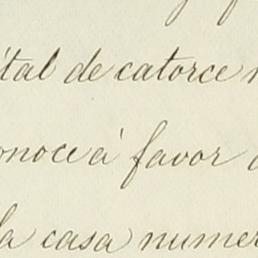 ital de catorce
onoce à favor
la casa numer